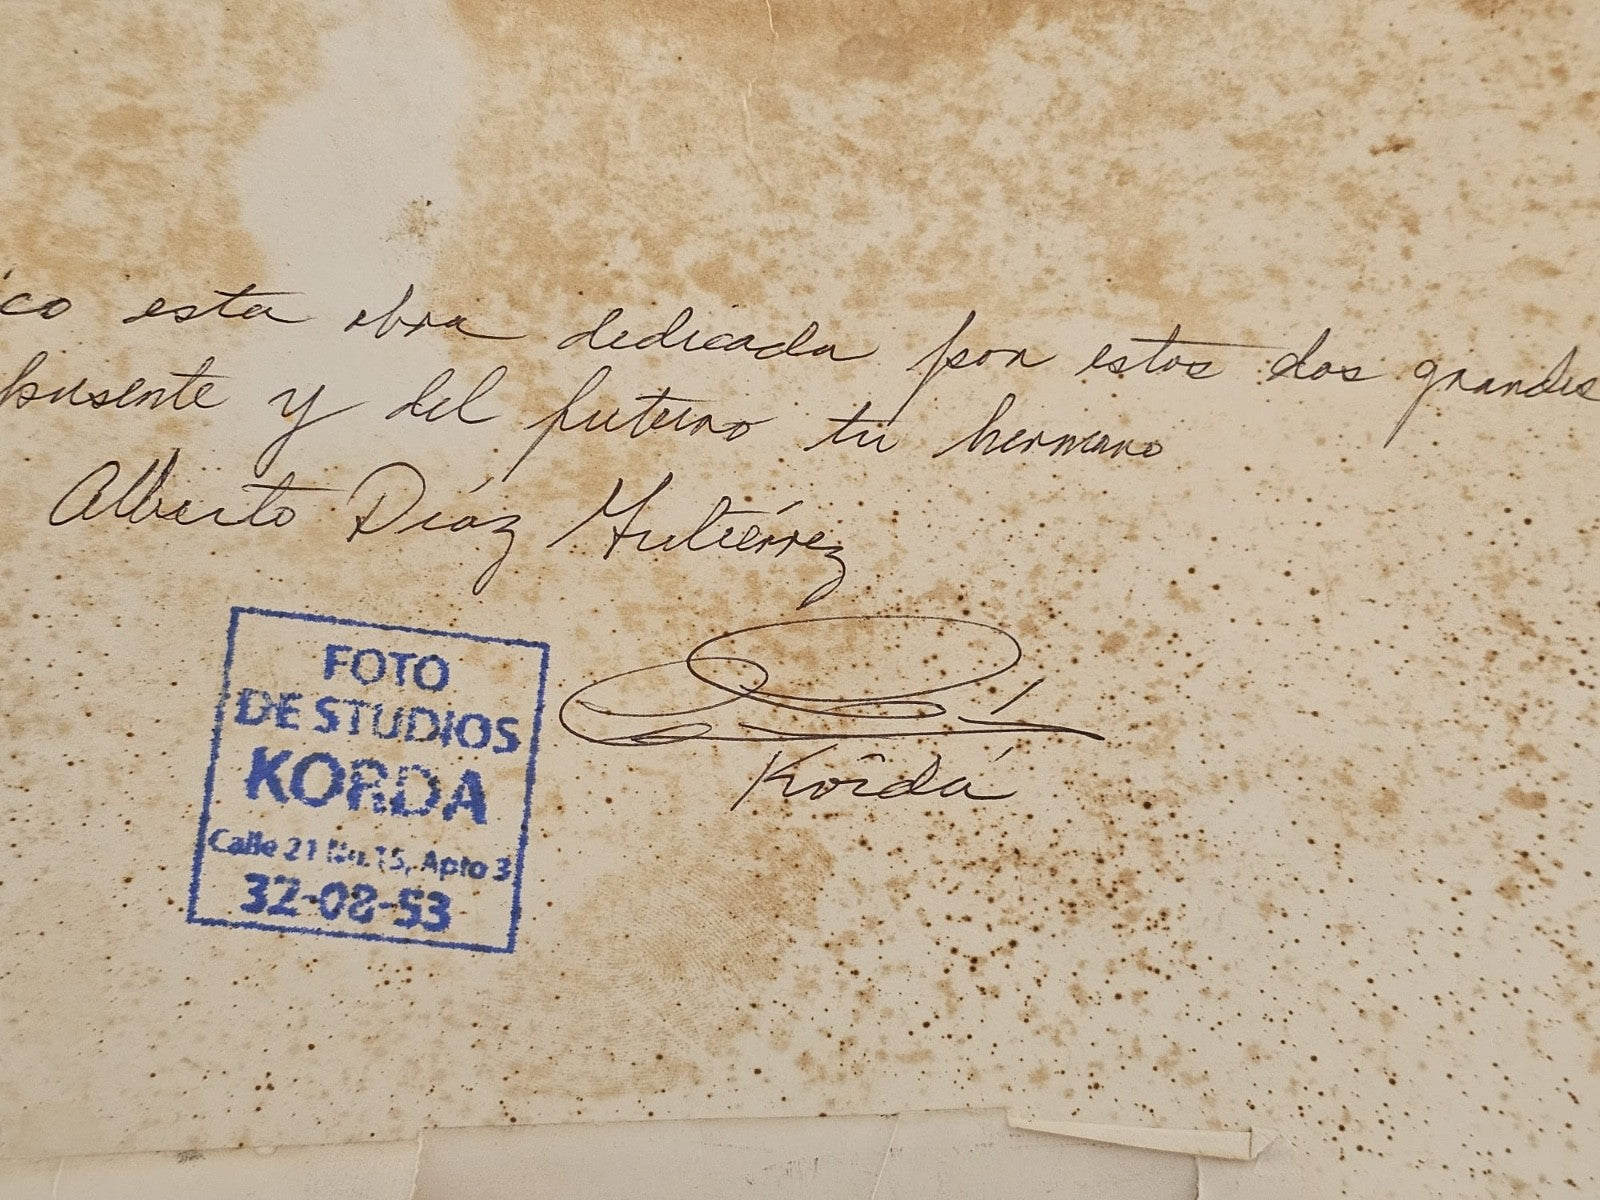 ico esta obra dedicada por estos dos grandes
presente y del futuro tu hermano
Alberto Díaz Gutiérrez
Korda
FOTO
DE STUDIOS
KORDA
Calle 21 No.15, Apto 3
32-08-53